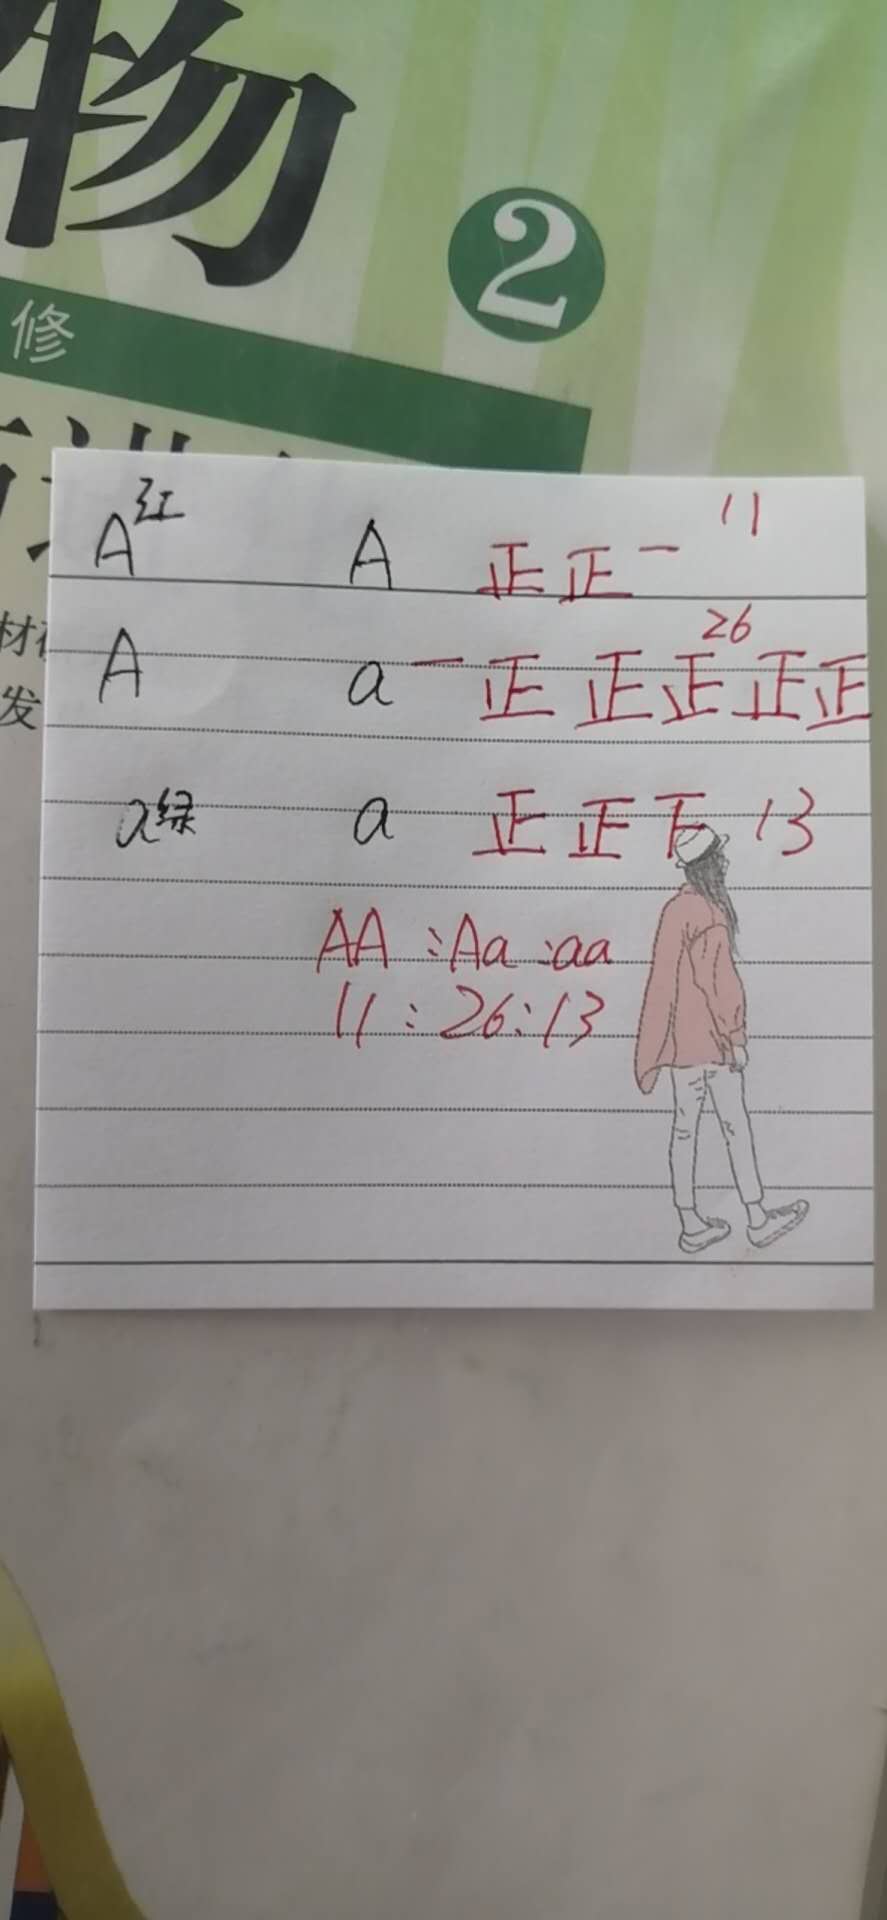 物
2
修
材
发
A红 A 正正一 11
26
A a 一正正正正正
a绿 a 正正下 13
AA:Aa:aa
11:26:13